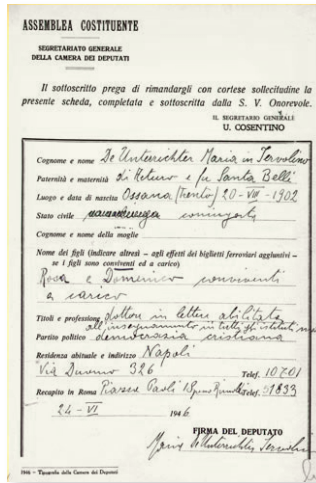 ASSEMBLEA COSTITUENTE
SEGRETARIATO GENERALE
DELLA CAMERA DEI DEPUTATI
Il sottoscritto prega di rimandargli con cortese sollecitudine la
presente scheda, completata e sottoscritta dalla S. V. Onorevole.
IL SEGRETARIO GENERALE
U. COSENTINO
Cognome e nome De Unterrichter Maria in Jervolino
Paternità e maternità di Guido e fu Santa Belli
Luogo e data di nascita Ossana (Trento) 20-VIII-1902
Stato civile coniugata
Cognome e nome della moglie
Nome dei figli (indicare altresì - agli effetti dei biglietti ferroviari aggiuntivi -
se i figli sono conviventi ed a carico)
Rosa e Domenico conviventi
a carico
Titoli e professione dottore in lettere abilitata
all'insegnamento in tutti gli istituti
Partito politico democrazia cristiana
Residenza abituale e indirizzo Napoli
Via Duomo 326 Telef. 10701
Recapito in Roma Piazza Paoli Telef. 51833
24-VI 1946
FIRMA DEL DEPUTATO
Maria De Unterrichter Jervolino
1946 - Tipografia della Camera dei Deputati